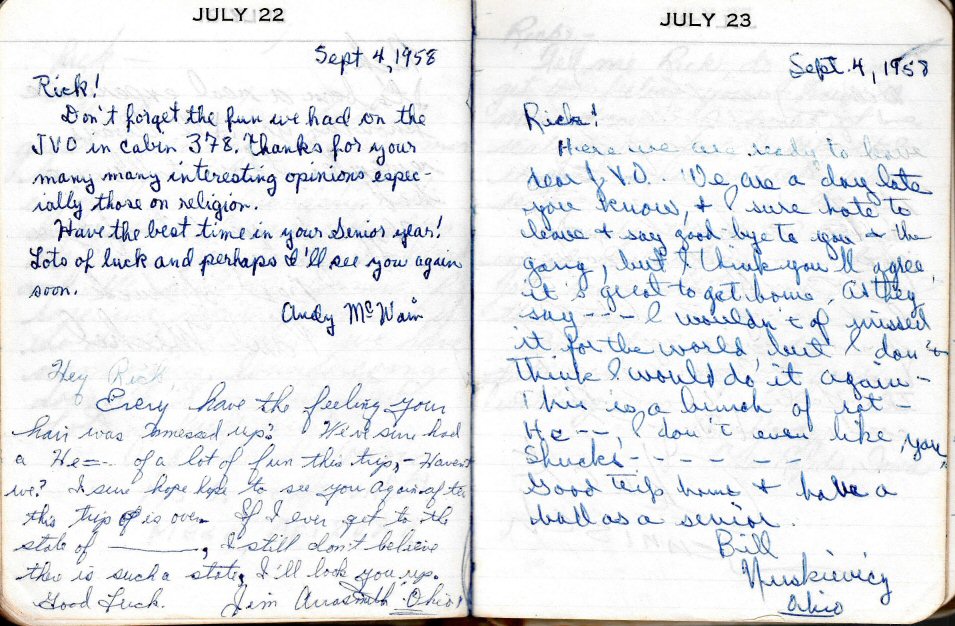 JULY 22
Sept 4, 1958
Rick!
Don't forget the fun we had on the
JVO in cabin 378. Thanks for your
many many interesting opinions espec-
ially those on religion.
Have the best time in your Senior year!
Lots of luck and perhaps I'll see you again
soon.
Andy McWain
Hey Rick,
Every have the feeling your
hair was messed up? We've sure had
a He=-- of a lot of fun this trip, - Haven't
we? I sure hope hope to see you again after
this trip is over. If I ever get to the
state of ________, I still don't believe
ther is such a state, I'll look you up.
Good Luck. Jim Ohio!
JULY 23
Sept. 4, 1958
Rick!
Here we are ready to leave
dear J.V.O. We are a day late
you know, & I sure hate to
leave & say good-bye to you & the
gang, but I think you'll agree,
it's great to get home. As they
say --- I wouldn't of missed
it for the world, but I don't
think I would do it again -
This is a bunch of rot -
He--, I don't even like you,
Shucks - - - - - -
Good trip home & have a
ball as a senior.
Bill
Ohio